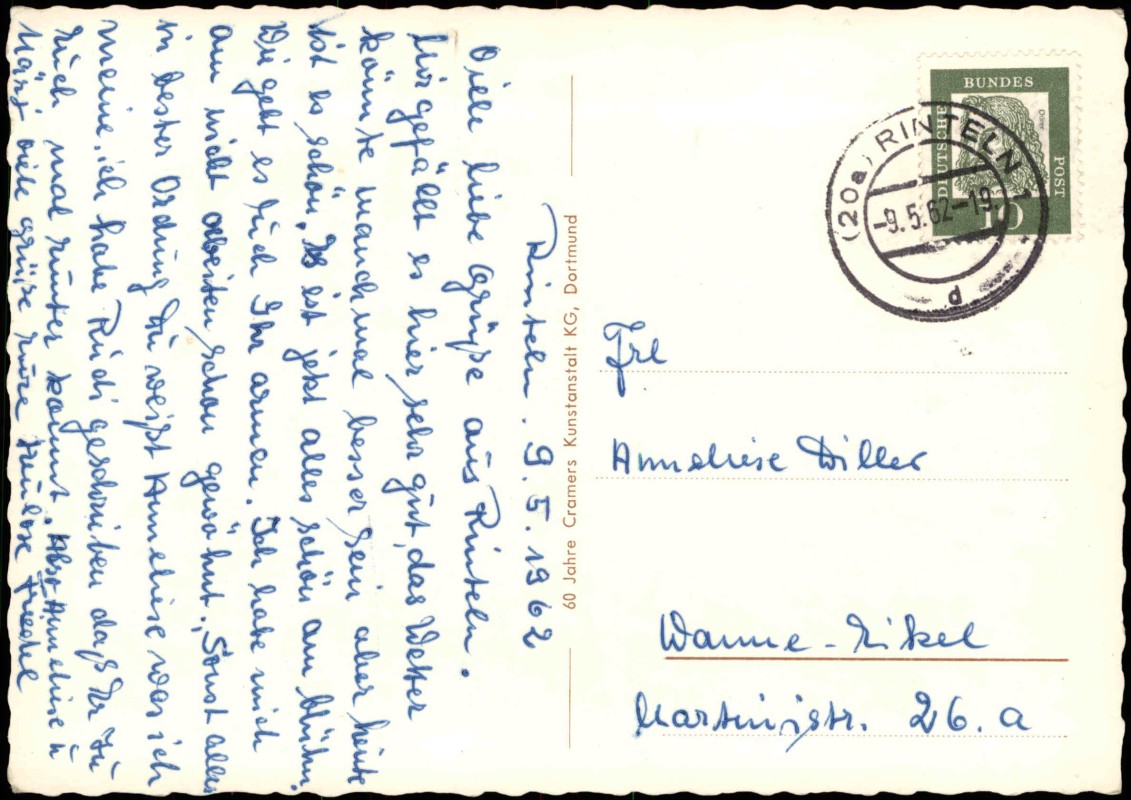 Rinteln. 9.5.1962
Viele liebe Grüße aus Rinteln.
Mir gefällt es hier sehr gut, das Wetter
könnte manchmal besser sein aber heute
ist es schön. Es ist jetzt alles schön am blühn.
Wie geht es Euch Ihr armen. Ich habe mich
am nicht arbeiten schon gewöhnt. Sonst alles
in bester Ordung Du weißt Anneliese was ich
meine, ich habe Rudi geschrieben daß Er zu
Euch mal runter kommt. Also Anneliese u
viele Grüße Eure
60 Jahre Cramers Kunstanstalt KG, Dortmund
DEUTSCHE BUNDES POST
Dürer
10
(20a) RINTELN
-9.5.62-19
d
Frl
Anneliese Diller
Wanne-Eikel
Martinistr. 26.a